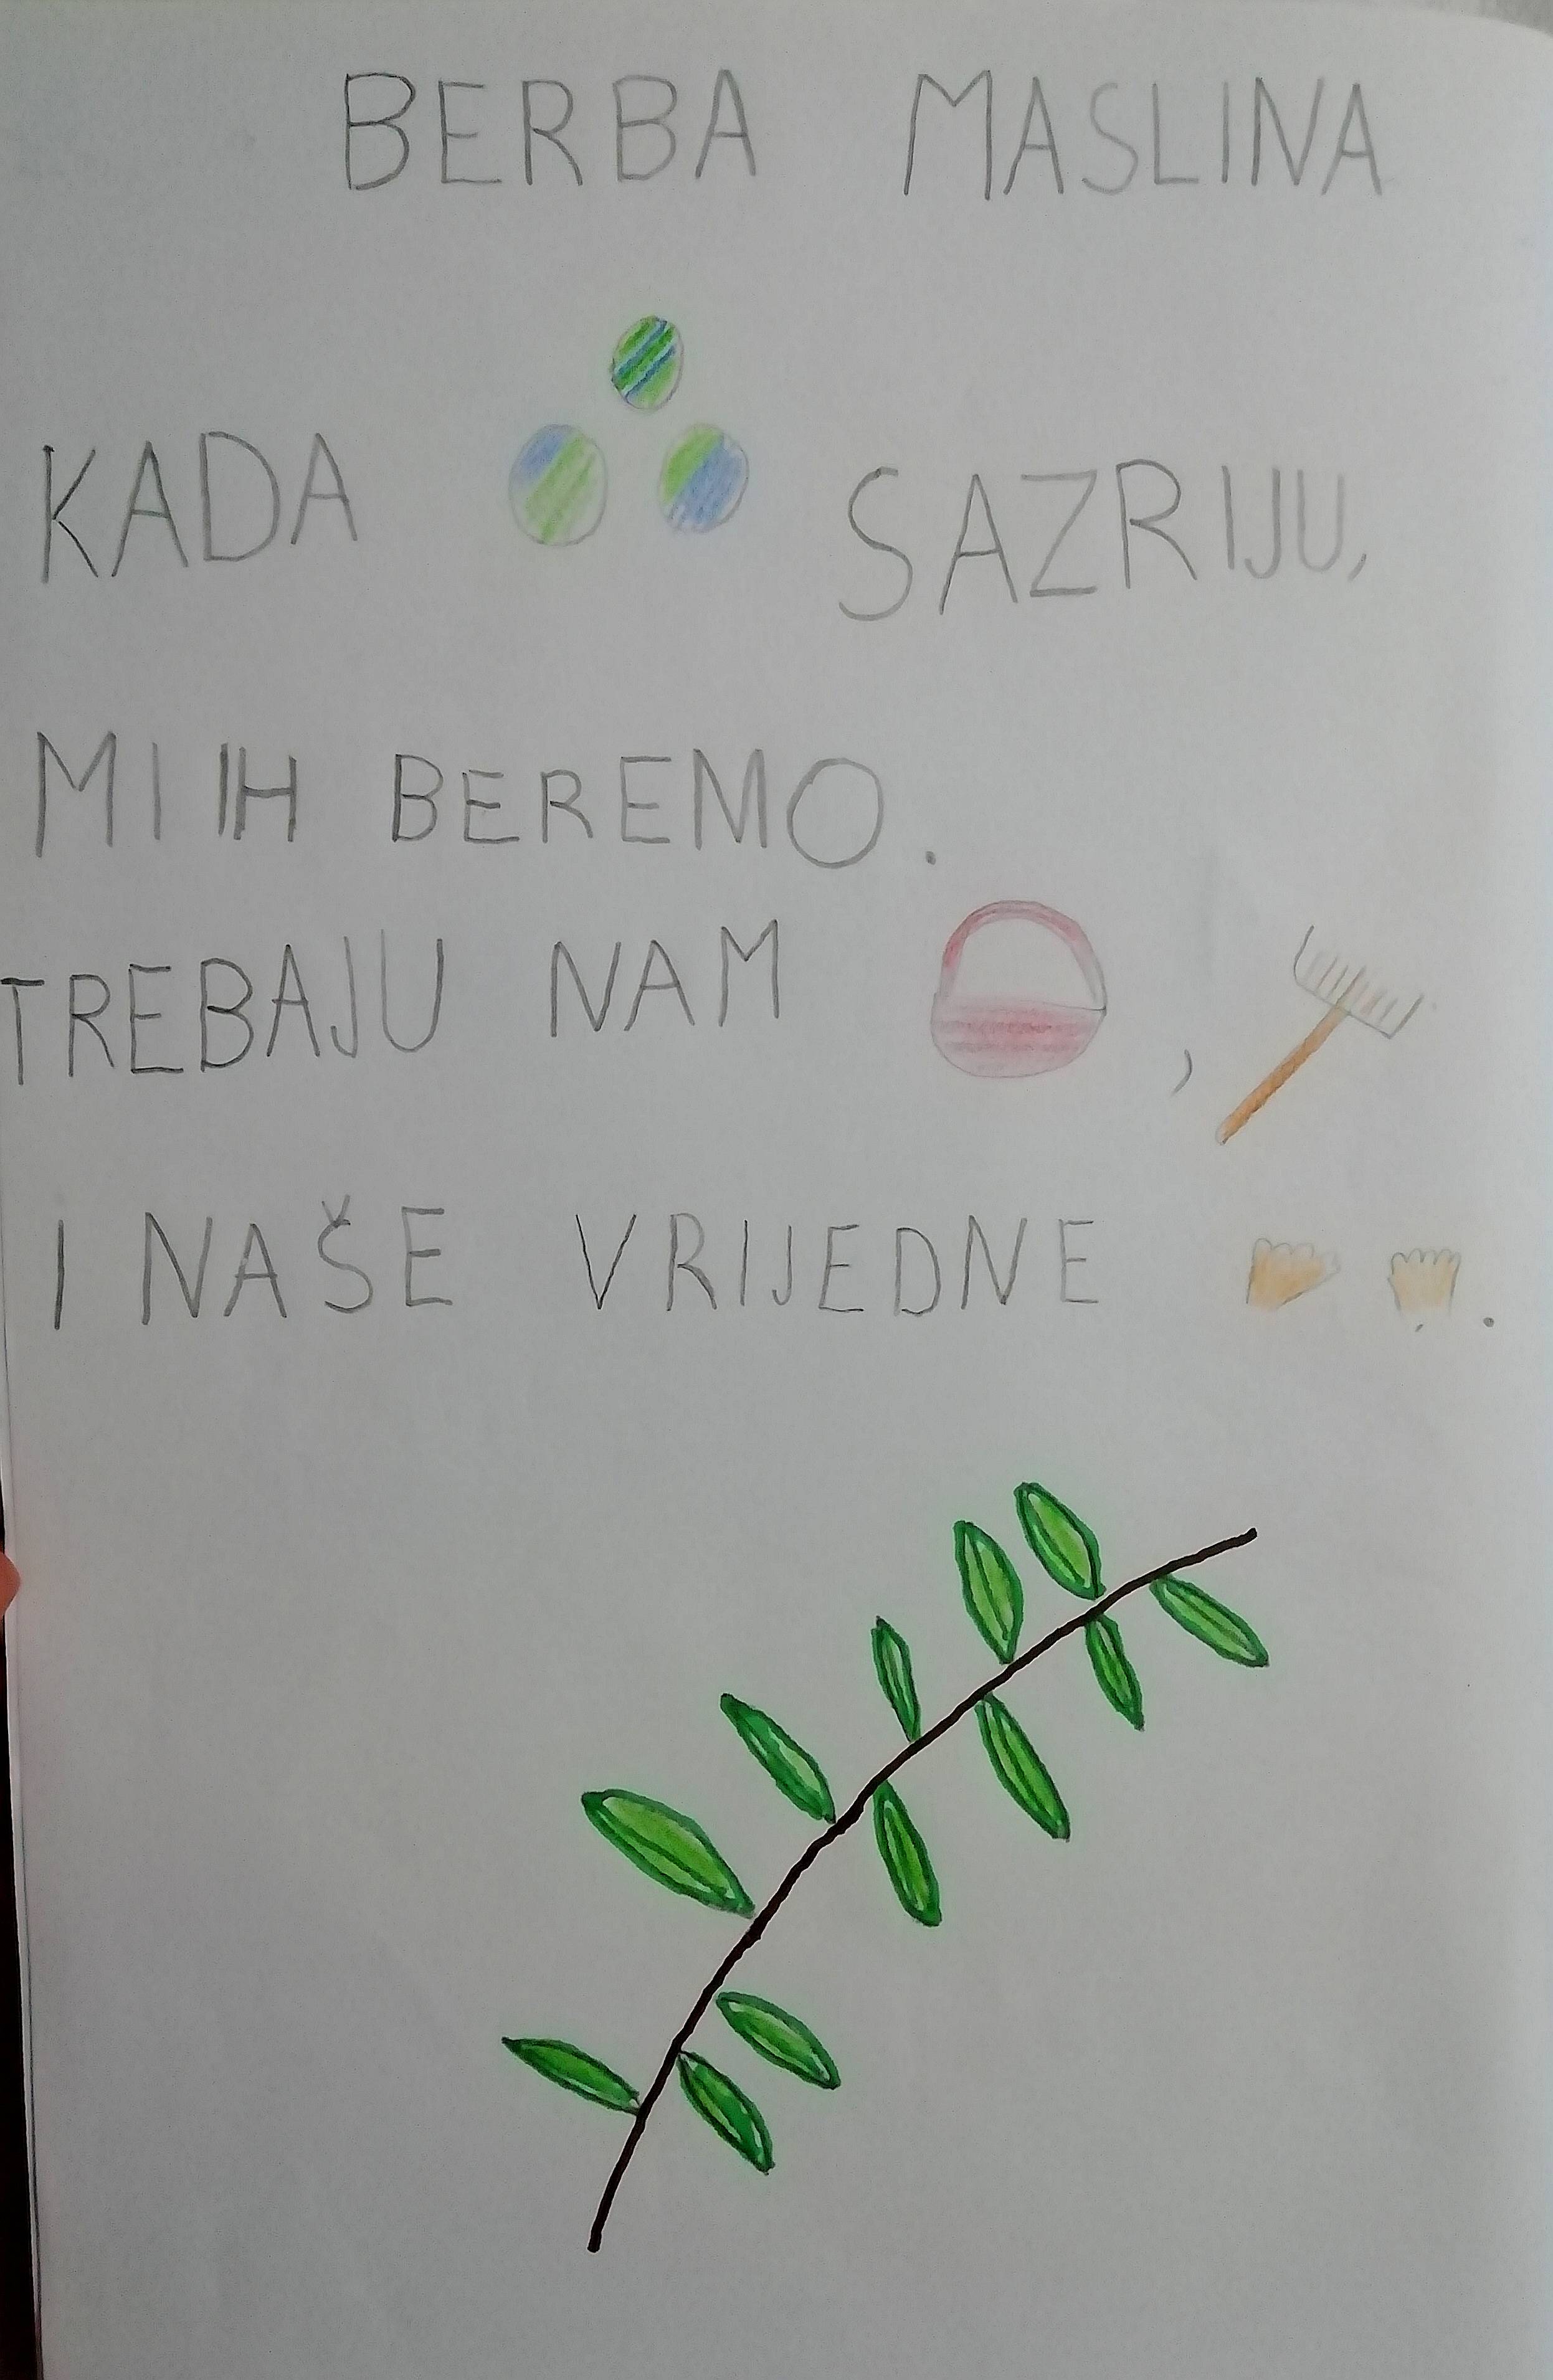 BERBA MASLINA
KADA SAZRIJU,
MI IH BEREMO.
TREBAJU NAM ,
I NAŠE VRIJEDNE .